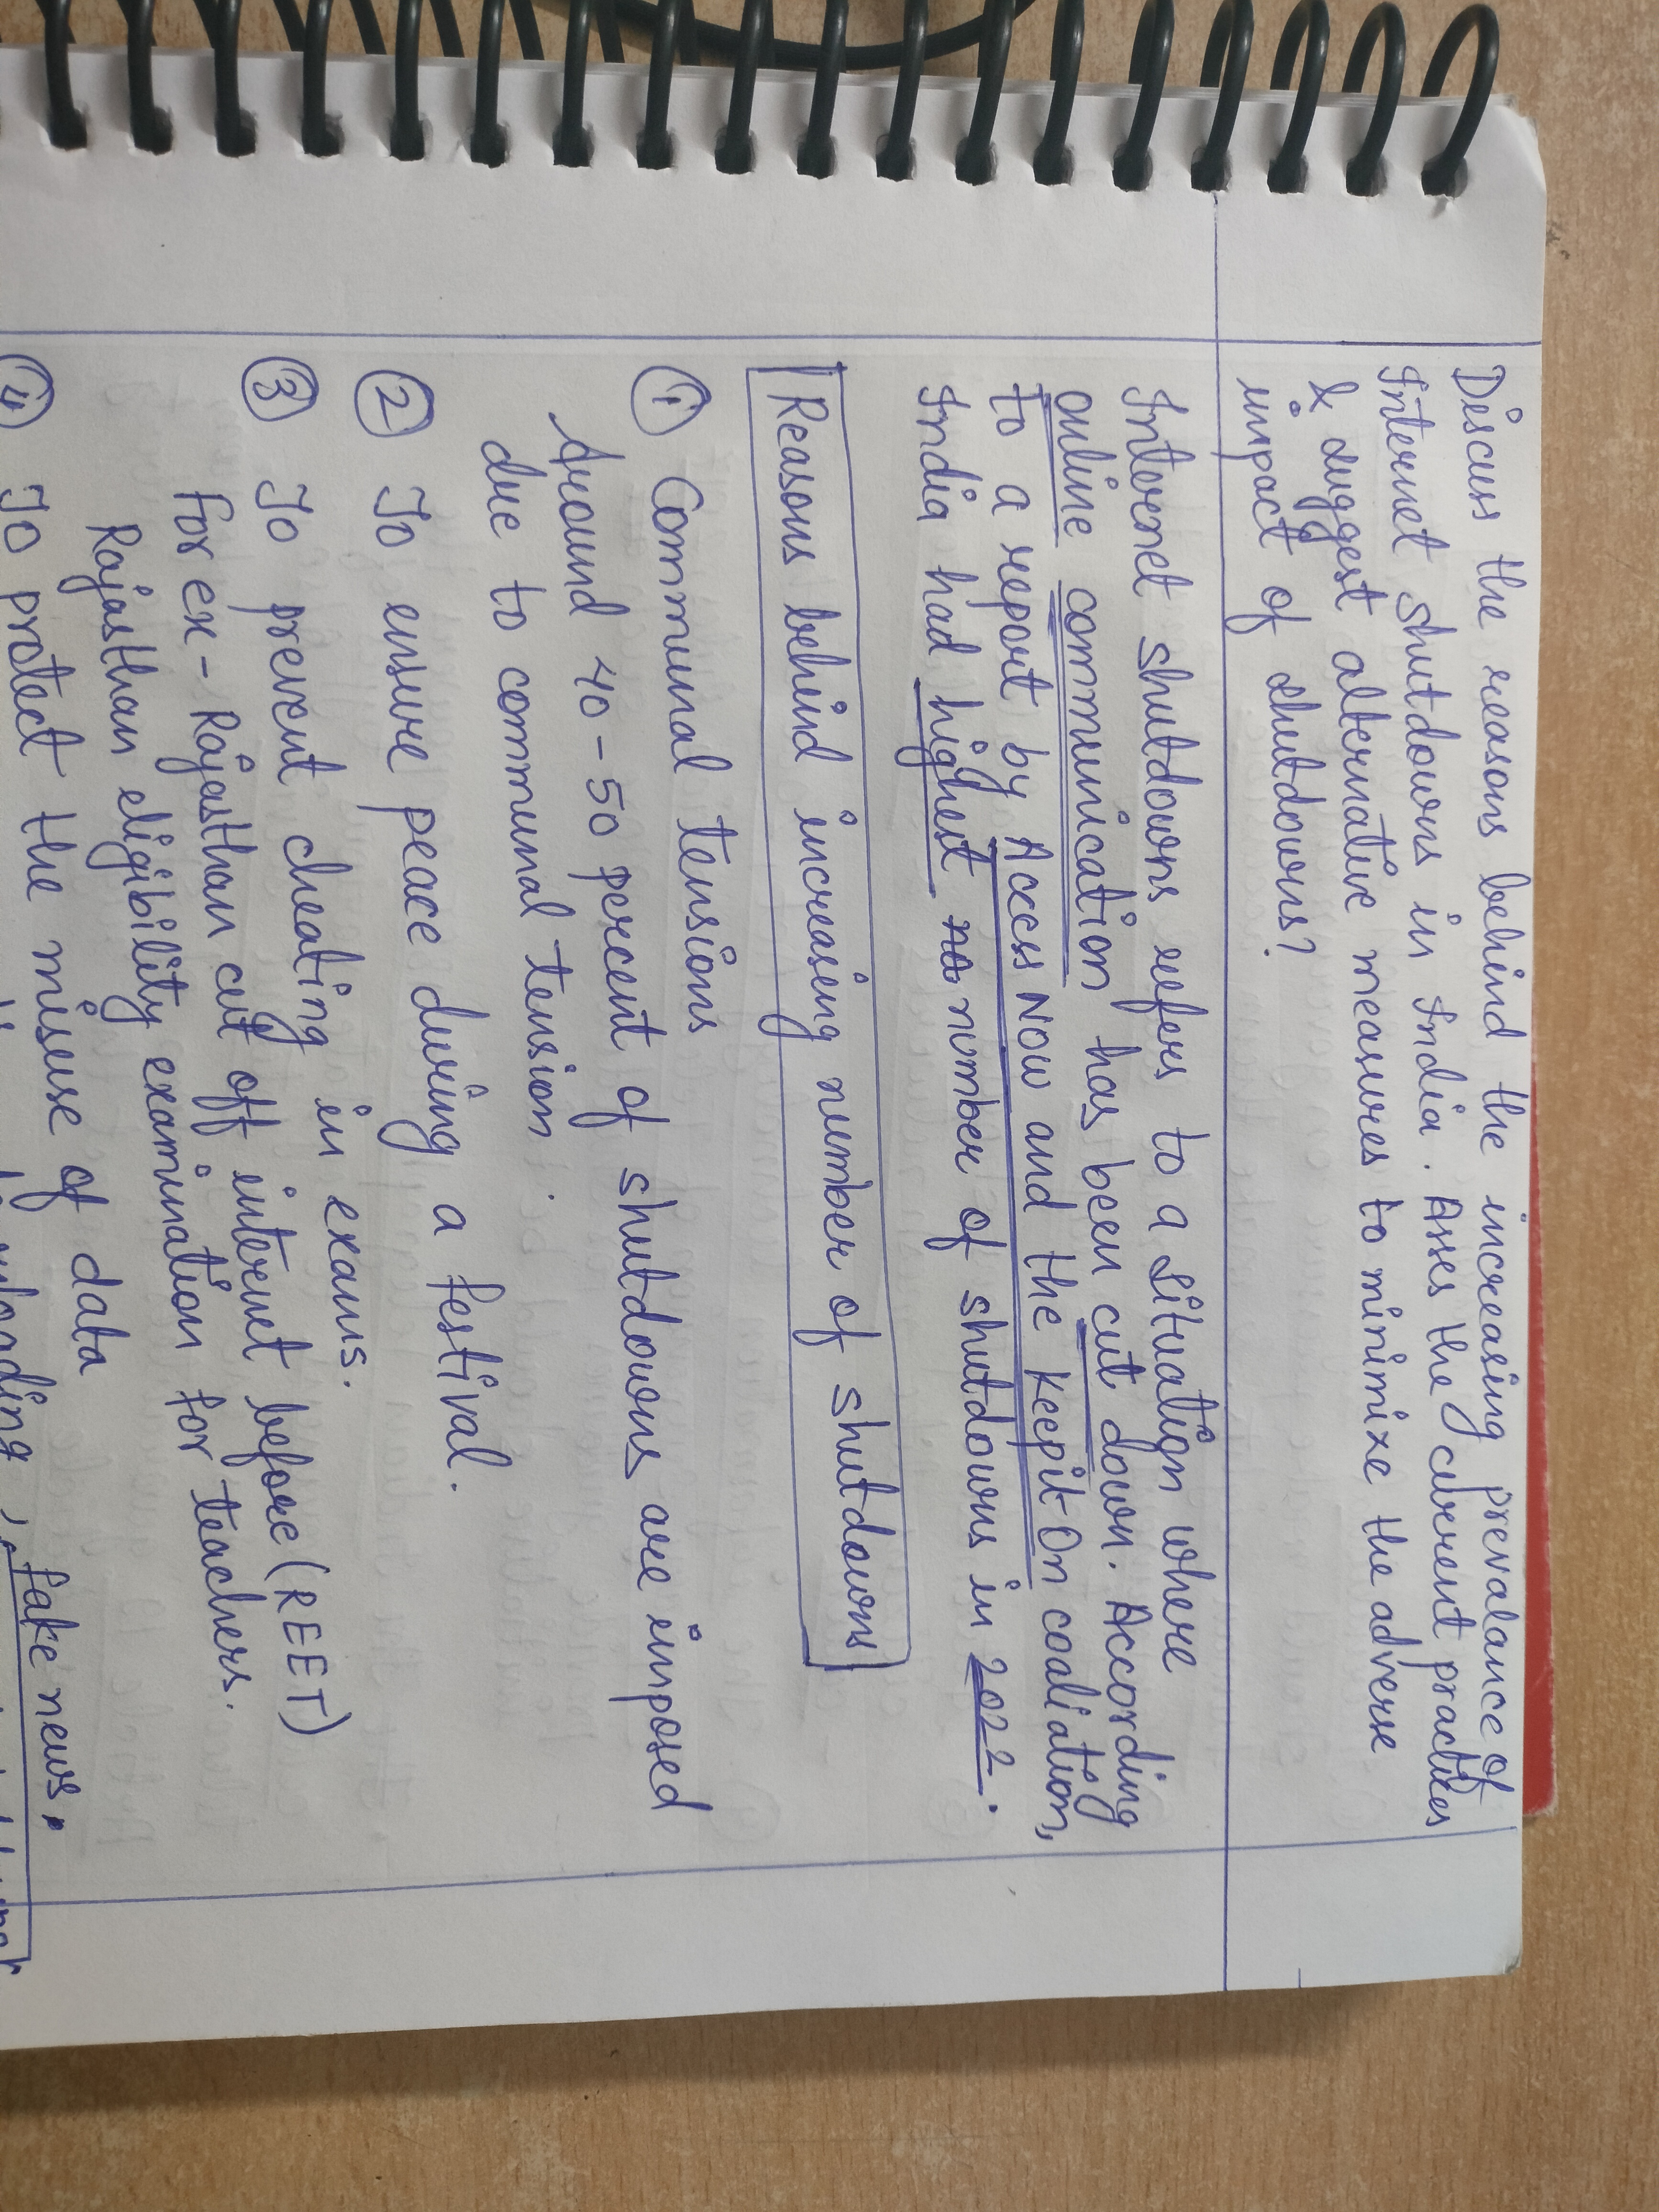 Discuss the reasons behind the increasing prevalance of
Internet shutdowns in India. Asses the current practices
& suggest alternative measures to minimize the adverse
impact of shutdowns?
Internet shutdowns refers to a situation where
online communication has been cut down. According
to a report by Access Now and the KeepitOn coaliation,
India had highest no number of shutdowns in 2022.
Reasons behind increasing number of shutdowns
① Communal tensions
Around 40-50 percent of shutdowns are imposed
due to communal tension.
② To ensure peace during a festival.
③ To prevent cheating in exams.
for ex- Rajasthan cut off internet before (REET)
Rajasthan eligibility examination for teachers.
④ To protect the misuse of data
fake news,